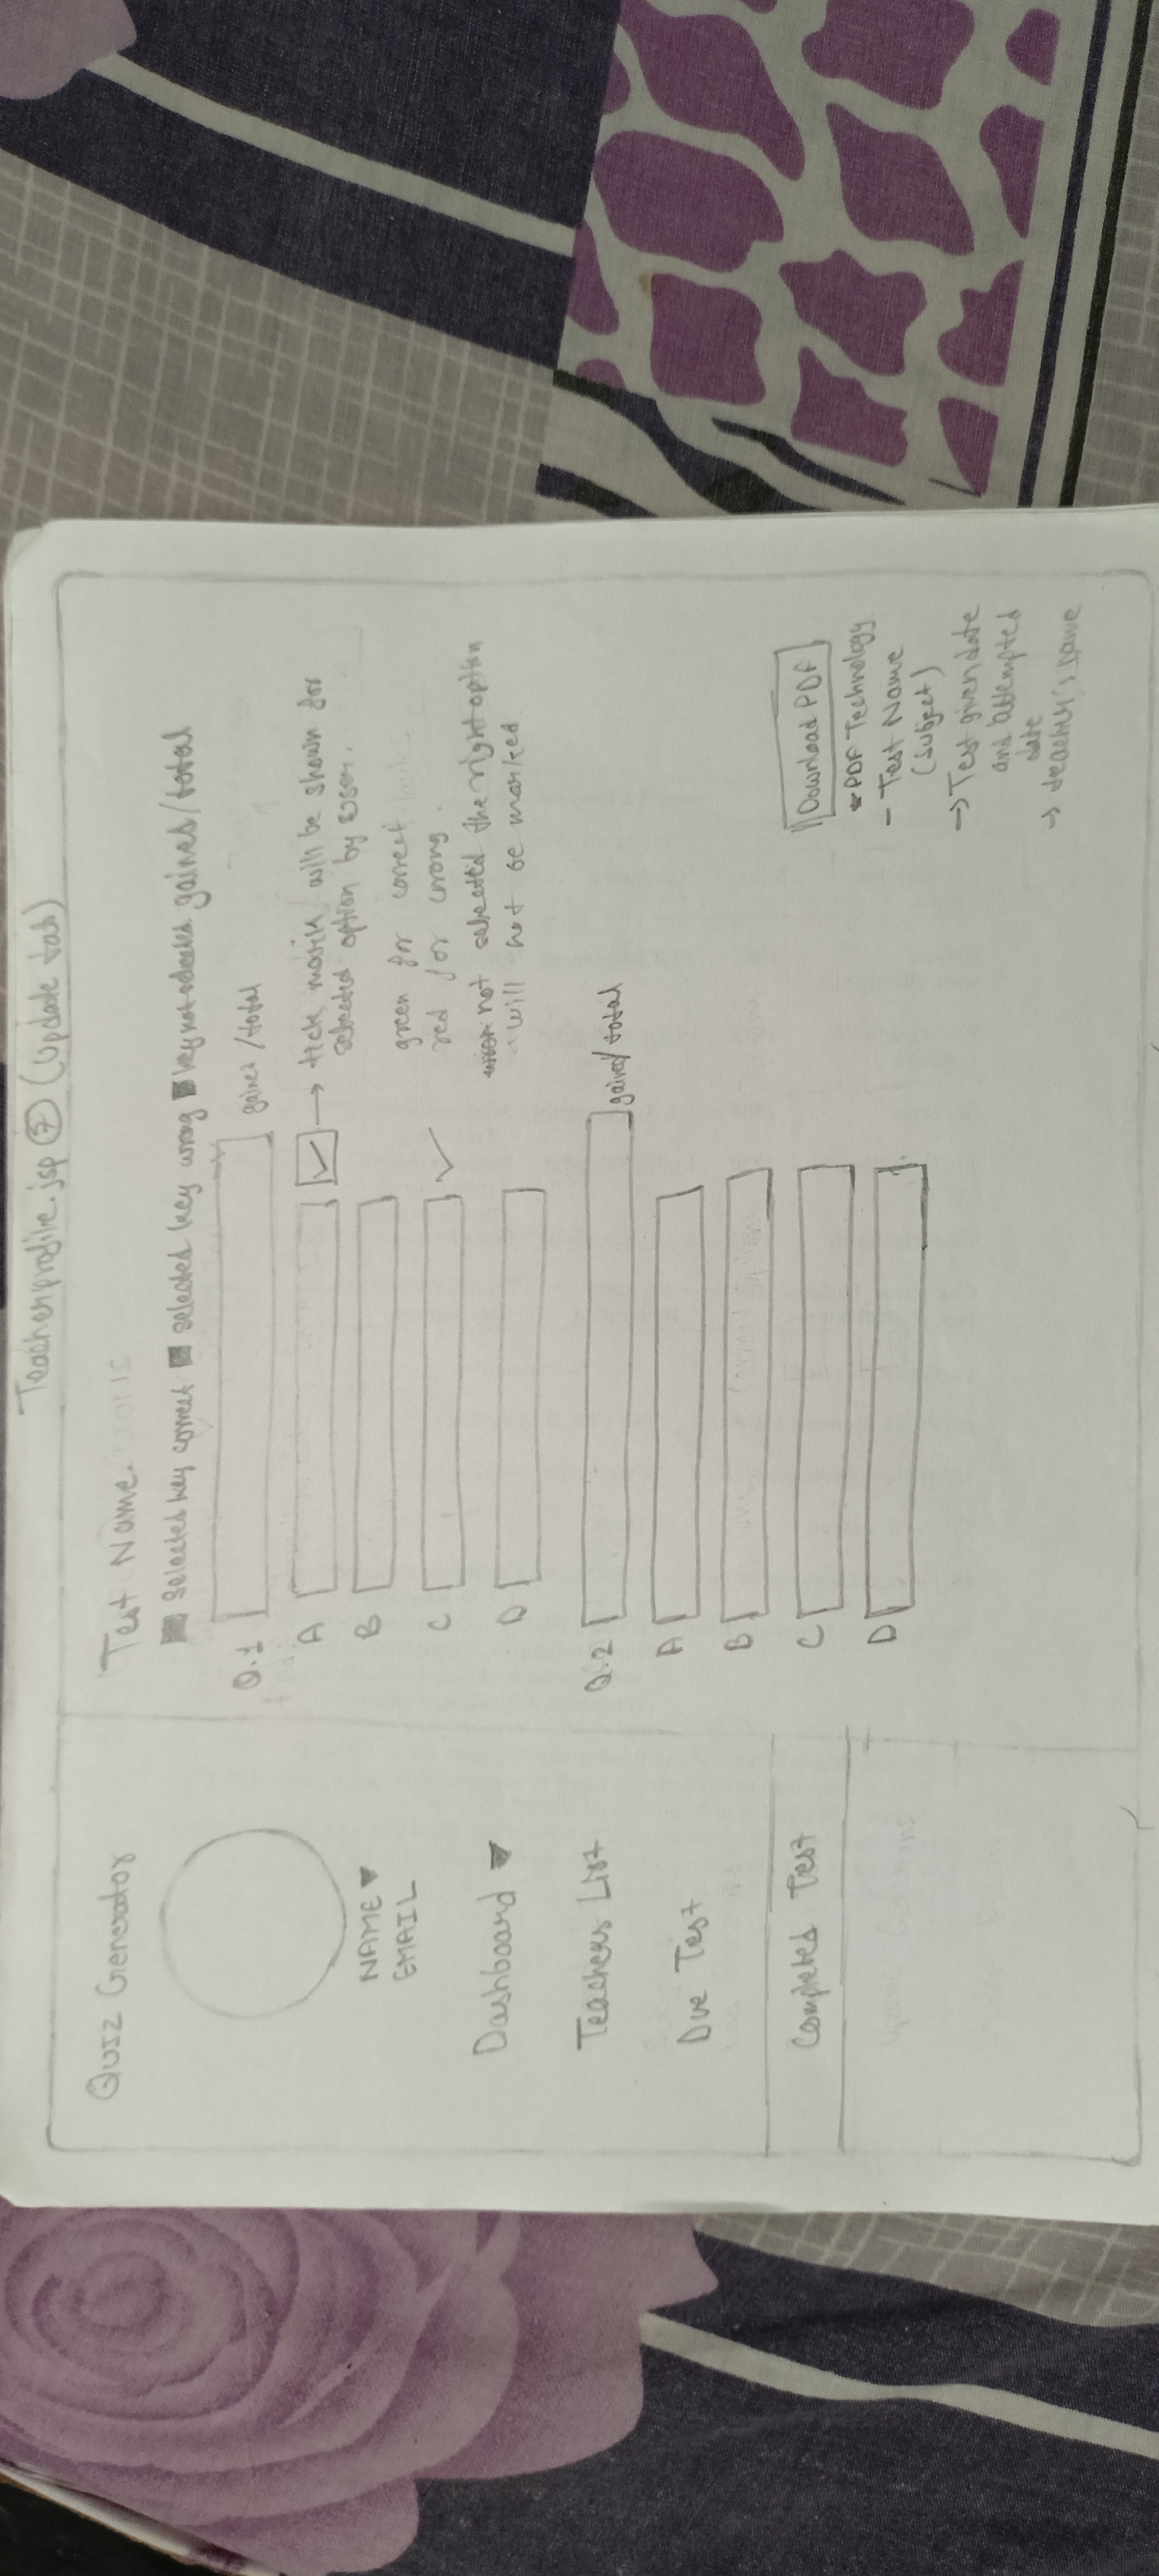 Teacherprofile.jsp 7 (Update tab)
Quiz Generator
NAME
EMAIL
Dashboard
Teachers List
Due Test
Completed Test
Test Name
Selected key correct selected key wrong key not selected gained/total
Q.1 gained/total
A → tick mark will be shown for
selected option by user.
B
green for correct
C red for wrong.
not selected the right option
D will not be marked
Q.2 gained/total
A
B
C
D
Download PDF
* PDF Technology
- Test Name
(Subject)
→ Test given date
and attempted
date
→ teacher's name